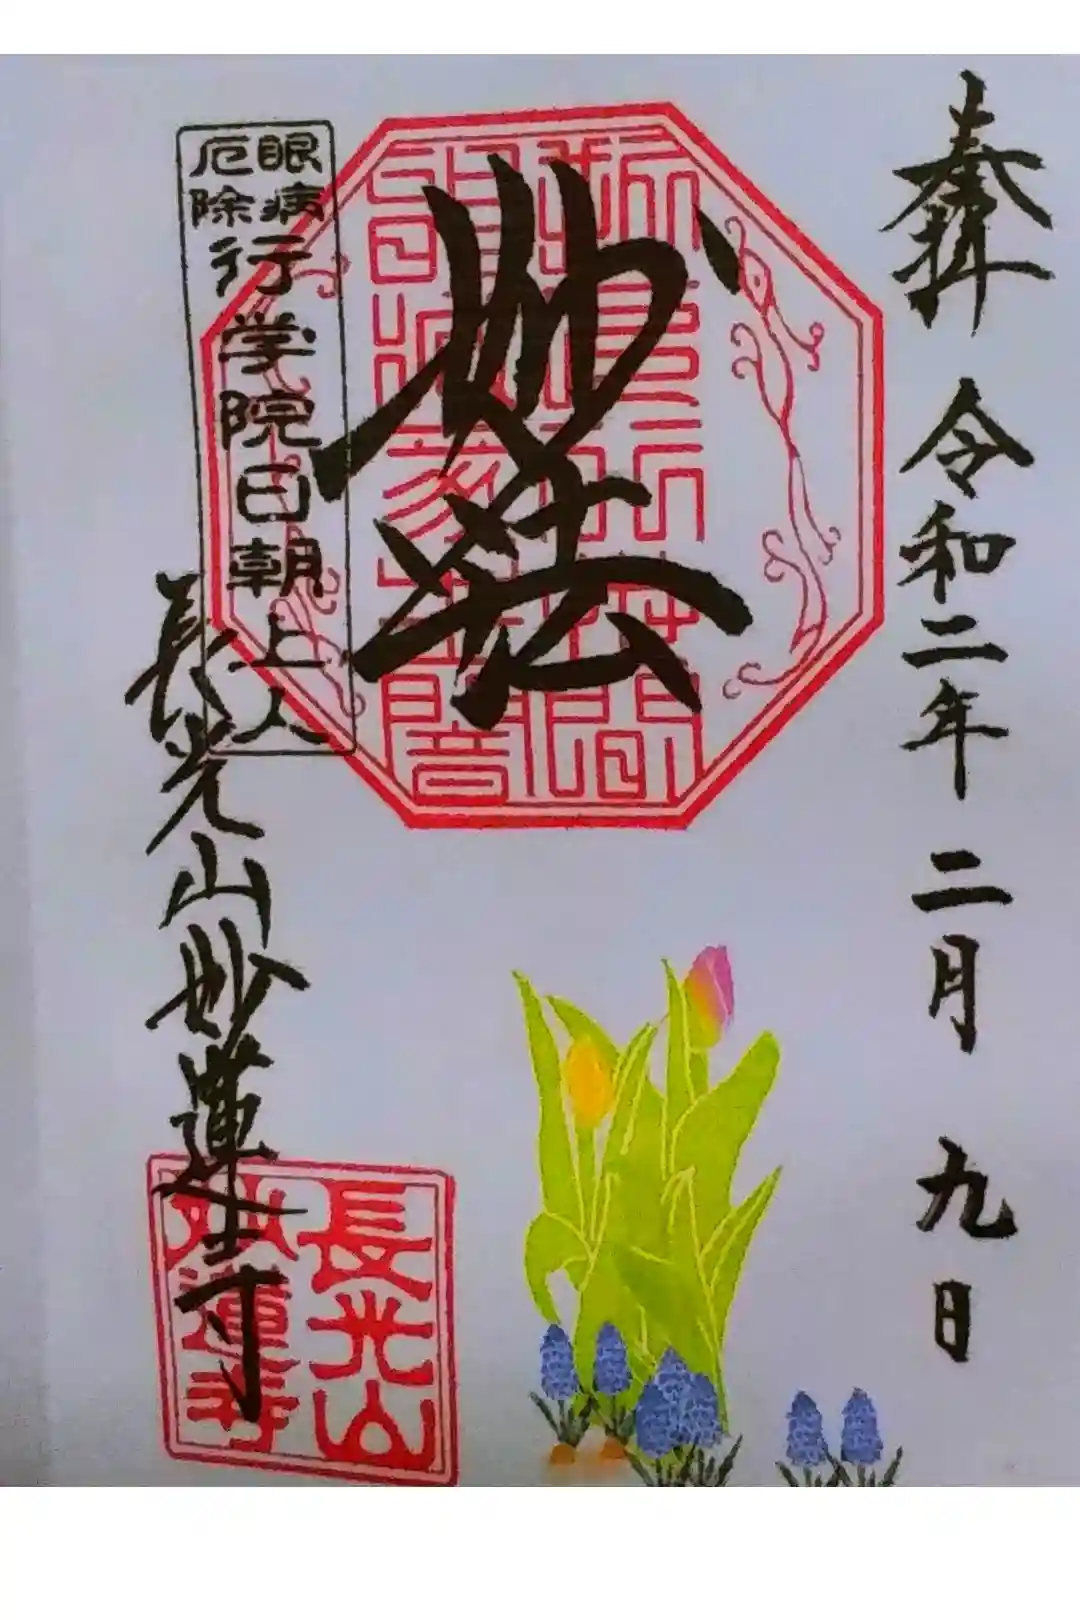 奉拝
令和二年 二月 九日
妙法
眼病
厄除
行学院日朝上人
長光山妙蓮寺
長光山
妙蓮寺